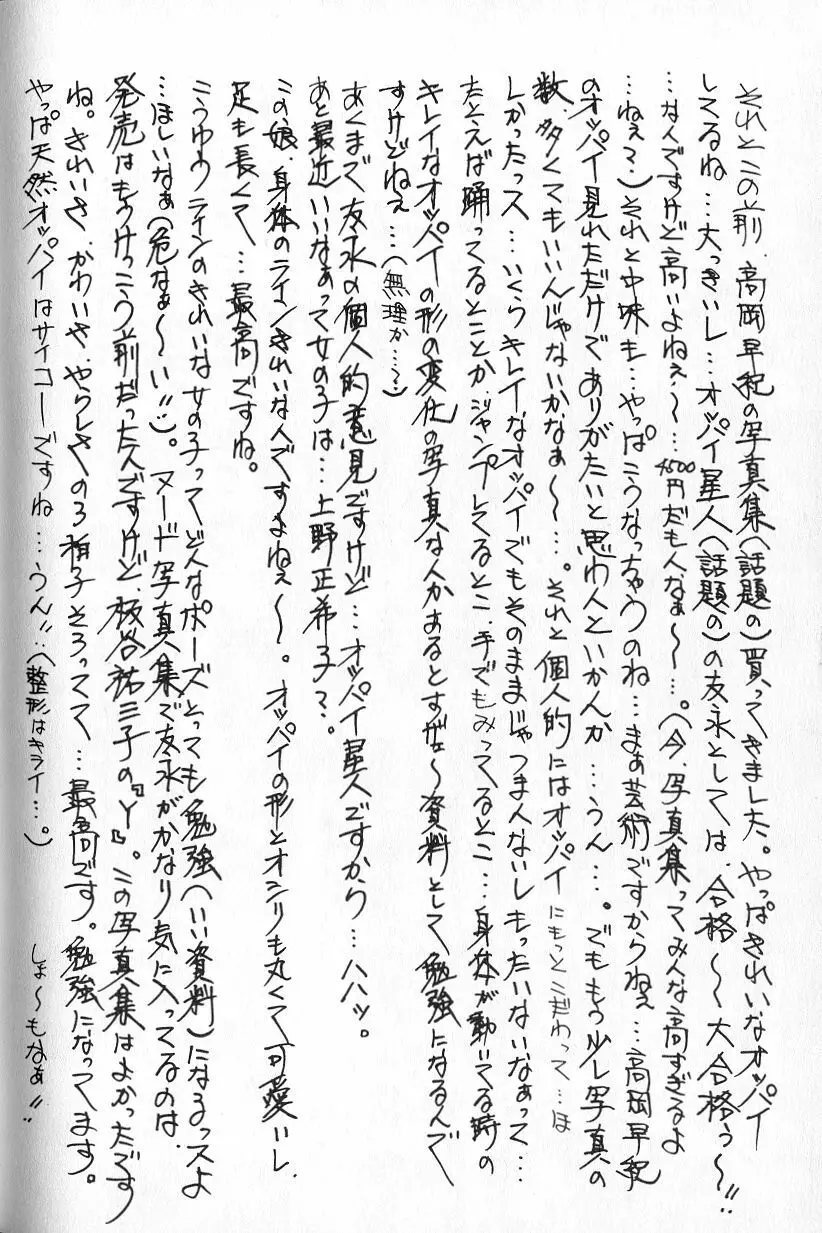 それとこの前、高岡早紀の写真集(話題の)買ってきました。やっぱきれいなオッパイ
してるね…大っきいし…オッパイ星人(話題の)の友永としては、合格〜大合格う〜!!
…なんですけど高いよねぇ〜…4500円だもんなぁ〜…。(今、写真集ってみんな高すぎるよ
…ねぇ?)それと中味も…やっぱこうなっちゃうのね…まぁ芸術ですからねぇ…高岡早紀
のオッパイ見れただけでありがたいと思わんといかんか…うん…。でももう少し写真の
数、多くてもいいんじゃないかなぁ〜…。それと個人的にはオッパイにもっとこだわって…ほ
しかったっス…いくらキレイなオッパイでもそのままじゃつまんないしもったいないなぁって…
たとえば踊ってるとことかジャンプしてるとこ、手でもみってるとこ…身体が動いてる時の
キレイなオッパイの形の変化の写真なんかあるとすげェ〜資料として勉強になるんで
すけどねぇ…(無理か…?)
あくまで友永の個人的意見ですけど…オッパイ星人ですから…ハハッ。
あと最近いいなぁって女の子は…上野正希子?。
この娘、身体のラインきれいな人ですよねぇ〜。オッパイの形とオシリも丸くて可愛いし、
足も長くて…最高ですね。
こうゆうラインのきれいな女の子って、どんなポーズとっても勉強(いい資料)になるっスよ
…ほしいなぁ(危なぁ〜い!!)。ヌード写真集で友永がかなり気に入ってるのは、
発売はもうけっこう前だったんですけど、板谷祐三子の『Y』。この写真集はよかったです
ね。きれいさ、かわいさ、やらしさの3拍子そろってて…最高です。勉強になってます。
やっぱ天然オッパイはサイコーですね…うん!!(整形はキライ…。)
しょ〜もなぁ!!